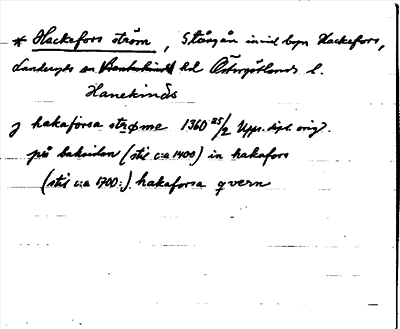 * Hackefors ström, Stångån invid byn Hackefors,
Landeryds sn Hd Östergötlands l.
Hanekinds
j hakaforsa strøme 1360 25/2 Upps. dipl. orig.
på baksidan (stil c:a 1400) in hakafors
(stil c:a 1700:) hakaforsa qvern